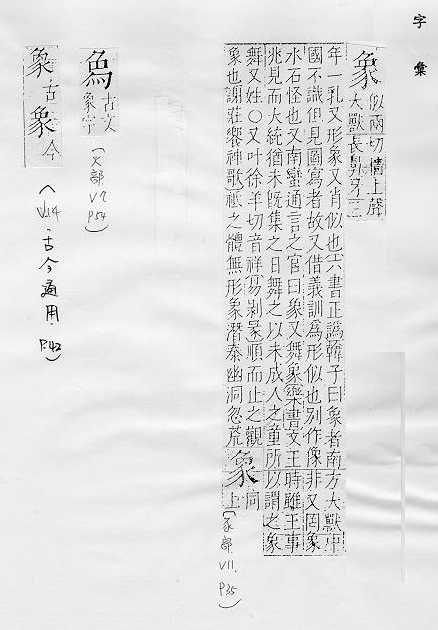 字彙
象 似兩切牆上聲
大獸長鼻牙三
年一乳又形象又肖似也六書正譌韓子曰象者南方大獸中
國不識但見圖寫者故又借義訓為形似也別作像非又罔象
水石怪也又南蠻通言之官曰象又舞象樂書文王時雖王事
兆見而大統猶未旣集之日舞之以未成人之童所以謂之象
舞又姓○又叶徐羊切音祥易剥彖順而止之觀
象也謝莊饗神歌祗之體無形象潛泰幽洞忽荒 象同
上
(豕部 VII. P35)
古文
象字
(火部 V7 P54)
古 象 今
(V14.古今通用.P42)